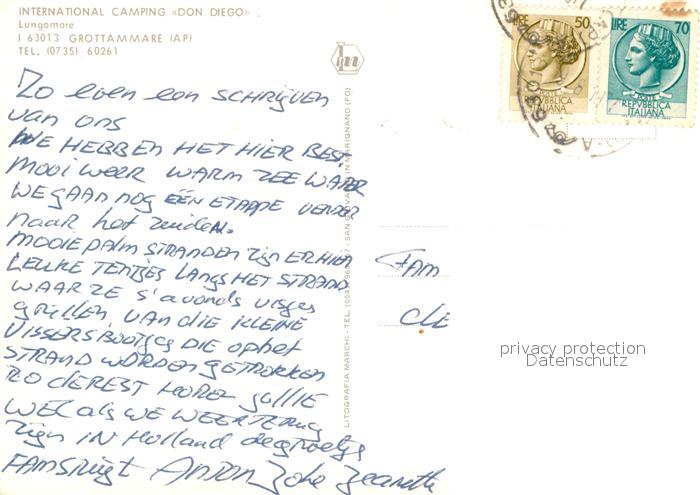 INTERNATIONAL CAMPING «DON DIEGO»
Lungomare
I 63013 GROTTAMMARE (AP)
TEL. (0735) 60261
LIRE 50
POSTE
REPVBBLICA
ITALIANA
LIRE 70
POSTE
REPVBBLICA
ITALIANA
Zo even een SCHRIJVEN
van ons
WE HEBBEN HET HIER BEST
MOOI weer WARM ZEE WATER
WE GAAN nog EEN ETAPPE VERDER
naar het zuiden.
MOOIE palm STRANDEN zijn ER HIER
LEUKE TENTJES langs HET STRAND
WAAR ZE S'avonds visjes
grillen VAN die KLEINE
VISSERSBOOTJES DIE op het
STRAND WORDEN GETROKKEN
ZO DE REST HOREN jullIE
WEL als WE WEER TERUG
zijn IN Holland de groetjes
FAM Anton
LITOGRAFIA MARCHI - TEL. SAN GIOVANNI IN MARIGNANO (FO)
FAM
privacy protection
Datenschutz